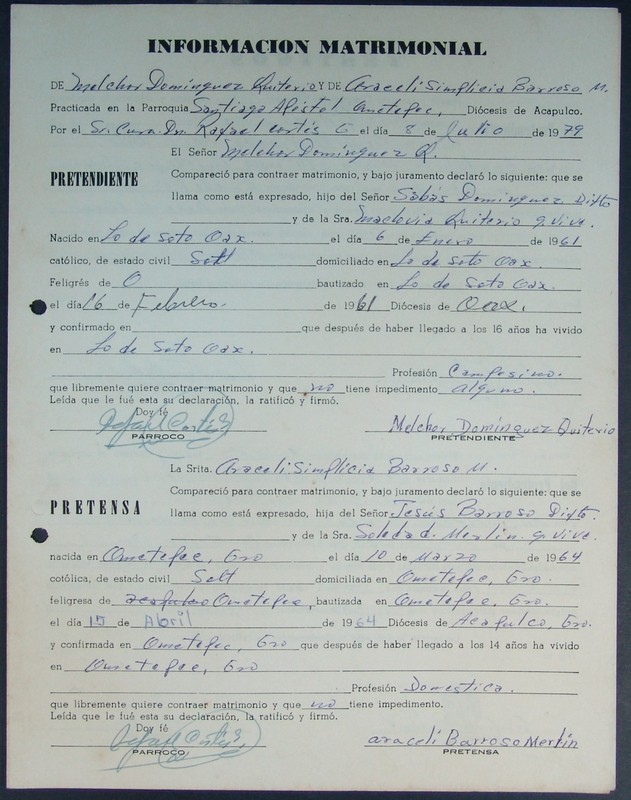 INFORMACION MATRIMONIAL
DE Melchor Domínguez Quiterio Y DE Araceli Simplicia Barroso M.
Practicada en la Parroquia Santiago Apóstol Ometepec, Diócesis de Acapulco.
Por el Sr. Cura. Dn. Rafael Cortés G el día 8 de Julio de 1979
El Señor Melchor Domínguez Q.
PRETENDIENTE
Compareció para contraer matrimonio, y bajo juramento declaró lo siguiente: que se
llama como está expresado, hijo del Señor Sabás Domínguez Difto
y de la Sra. Maclovia Quiterio q. vive.
Nacido en Lo de Soto Oax. el día 6 de Enero de 1961
católico, de estado civil Solt domiciliado en Lo de Soto Oax.
Feligrés de O bautizado en Lo de Soto Oax.
el día 16 de Febrero. de 1961 Diócesis de Oax.
y confirmado en que después de haber llegado a los 16 años ha vivido
en Lo de Soto Oax.
Profesión Campesino.
que libremente quiere contraer matrimonio y que no tiene impedimento alguno.
Leída que le fué esta su declaración, la ratificó y firmó.
Doy fé
Rafael Cortés G Melchor Domínguez Quiterio
PARROCO PRETENDIENTE
La Srita. Araceli Simplicia Barroso M.
PRETENSA
Compareció para contraer matrimonio, y bajo juramento declaró lo siguiente: que se
llama como está expresado, hija del Señor Jesús Barroso Difto.
y de la Sra. Soledad Merlin q. vive.
nacida en Ometepec, Gro el día 10 de Marzo de 1964
cotólica, de estado civil Solt domiciliada en Ometepec, Gro.
feligresa de Ometepec, bautizada en Ometepec, Gro.
el día 15 de Abril de 1964 Diócesis de Acapulco, Gro.
y confirmada en Ometepec, Gro que después de haber llegado a los 14 años ha vivido
en Ometepec, Gro
Profesión Domestica.
que libremente quiere contraer matrimonio y que no tiene impedimento.
Leída que le fué esta su declaración, la ratificó y firmó.
Doy fé
Rafael Cortés G araceli Barroso Merlin
PARROCO PRETENSA